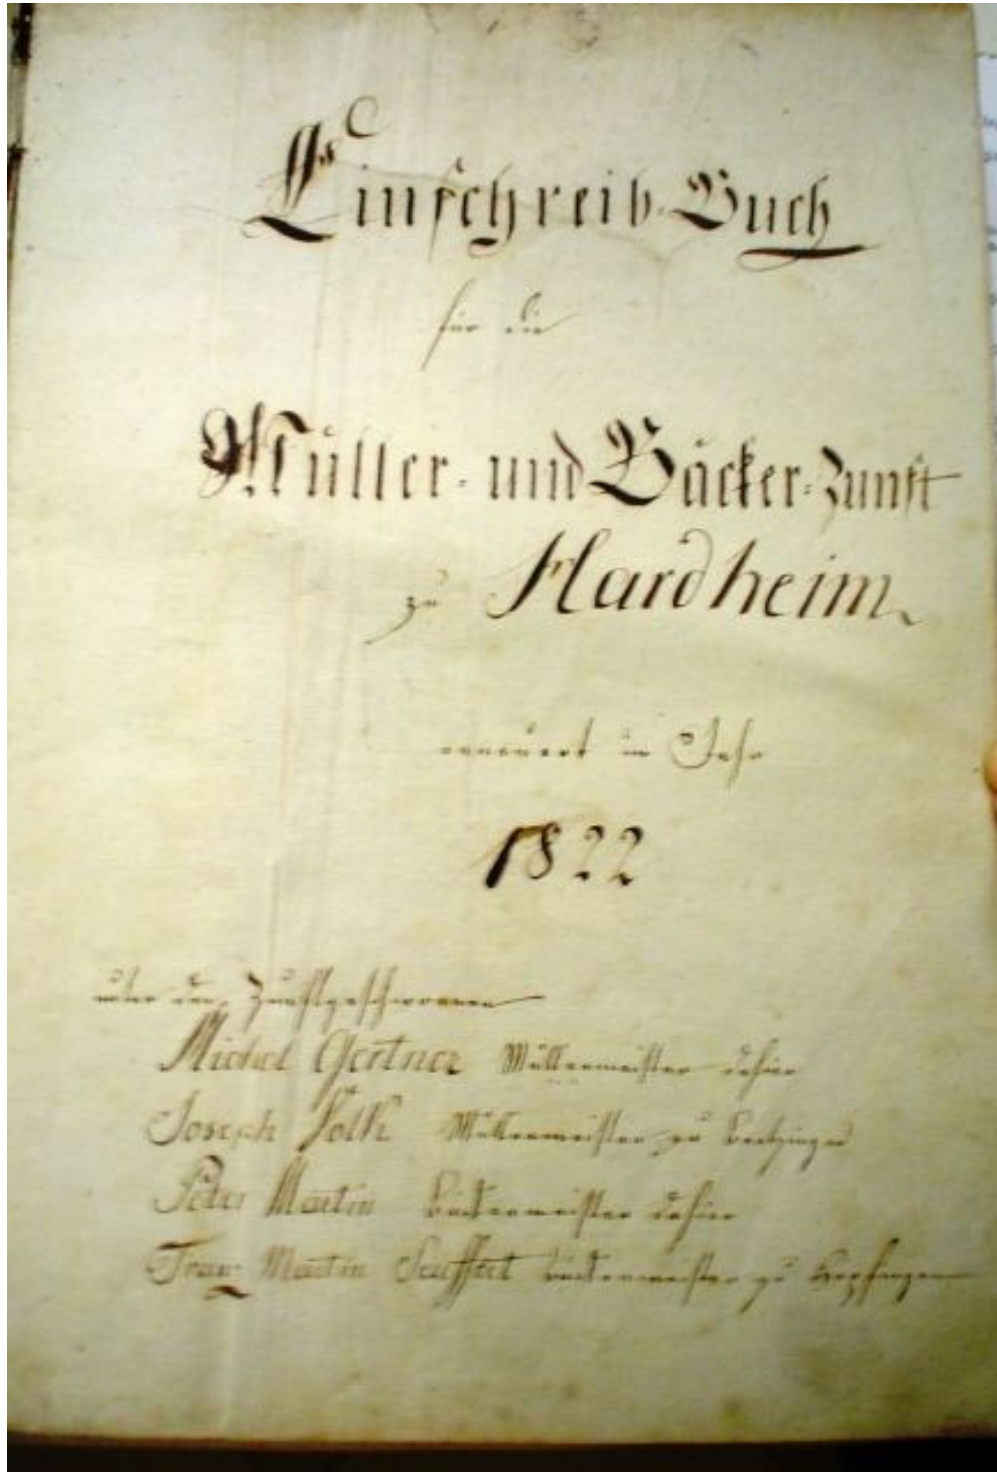 Einschreib-Buch
für die
Müller- und Bäcker-Zunft
zu Hardheim
erneuert im Jahr
1822
unter den Zunftgeschwornen
Michel Gertner Müllermeister dahier
Joseph Volk Müllermeister zu Bretzingen
Peter Martin Bäckermeister dahier
Franz Martin Seuffert Bäckermeister zu Höpfingen